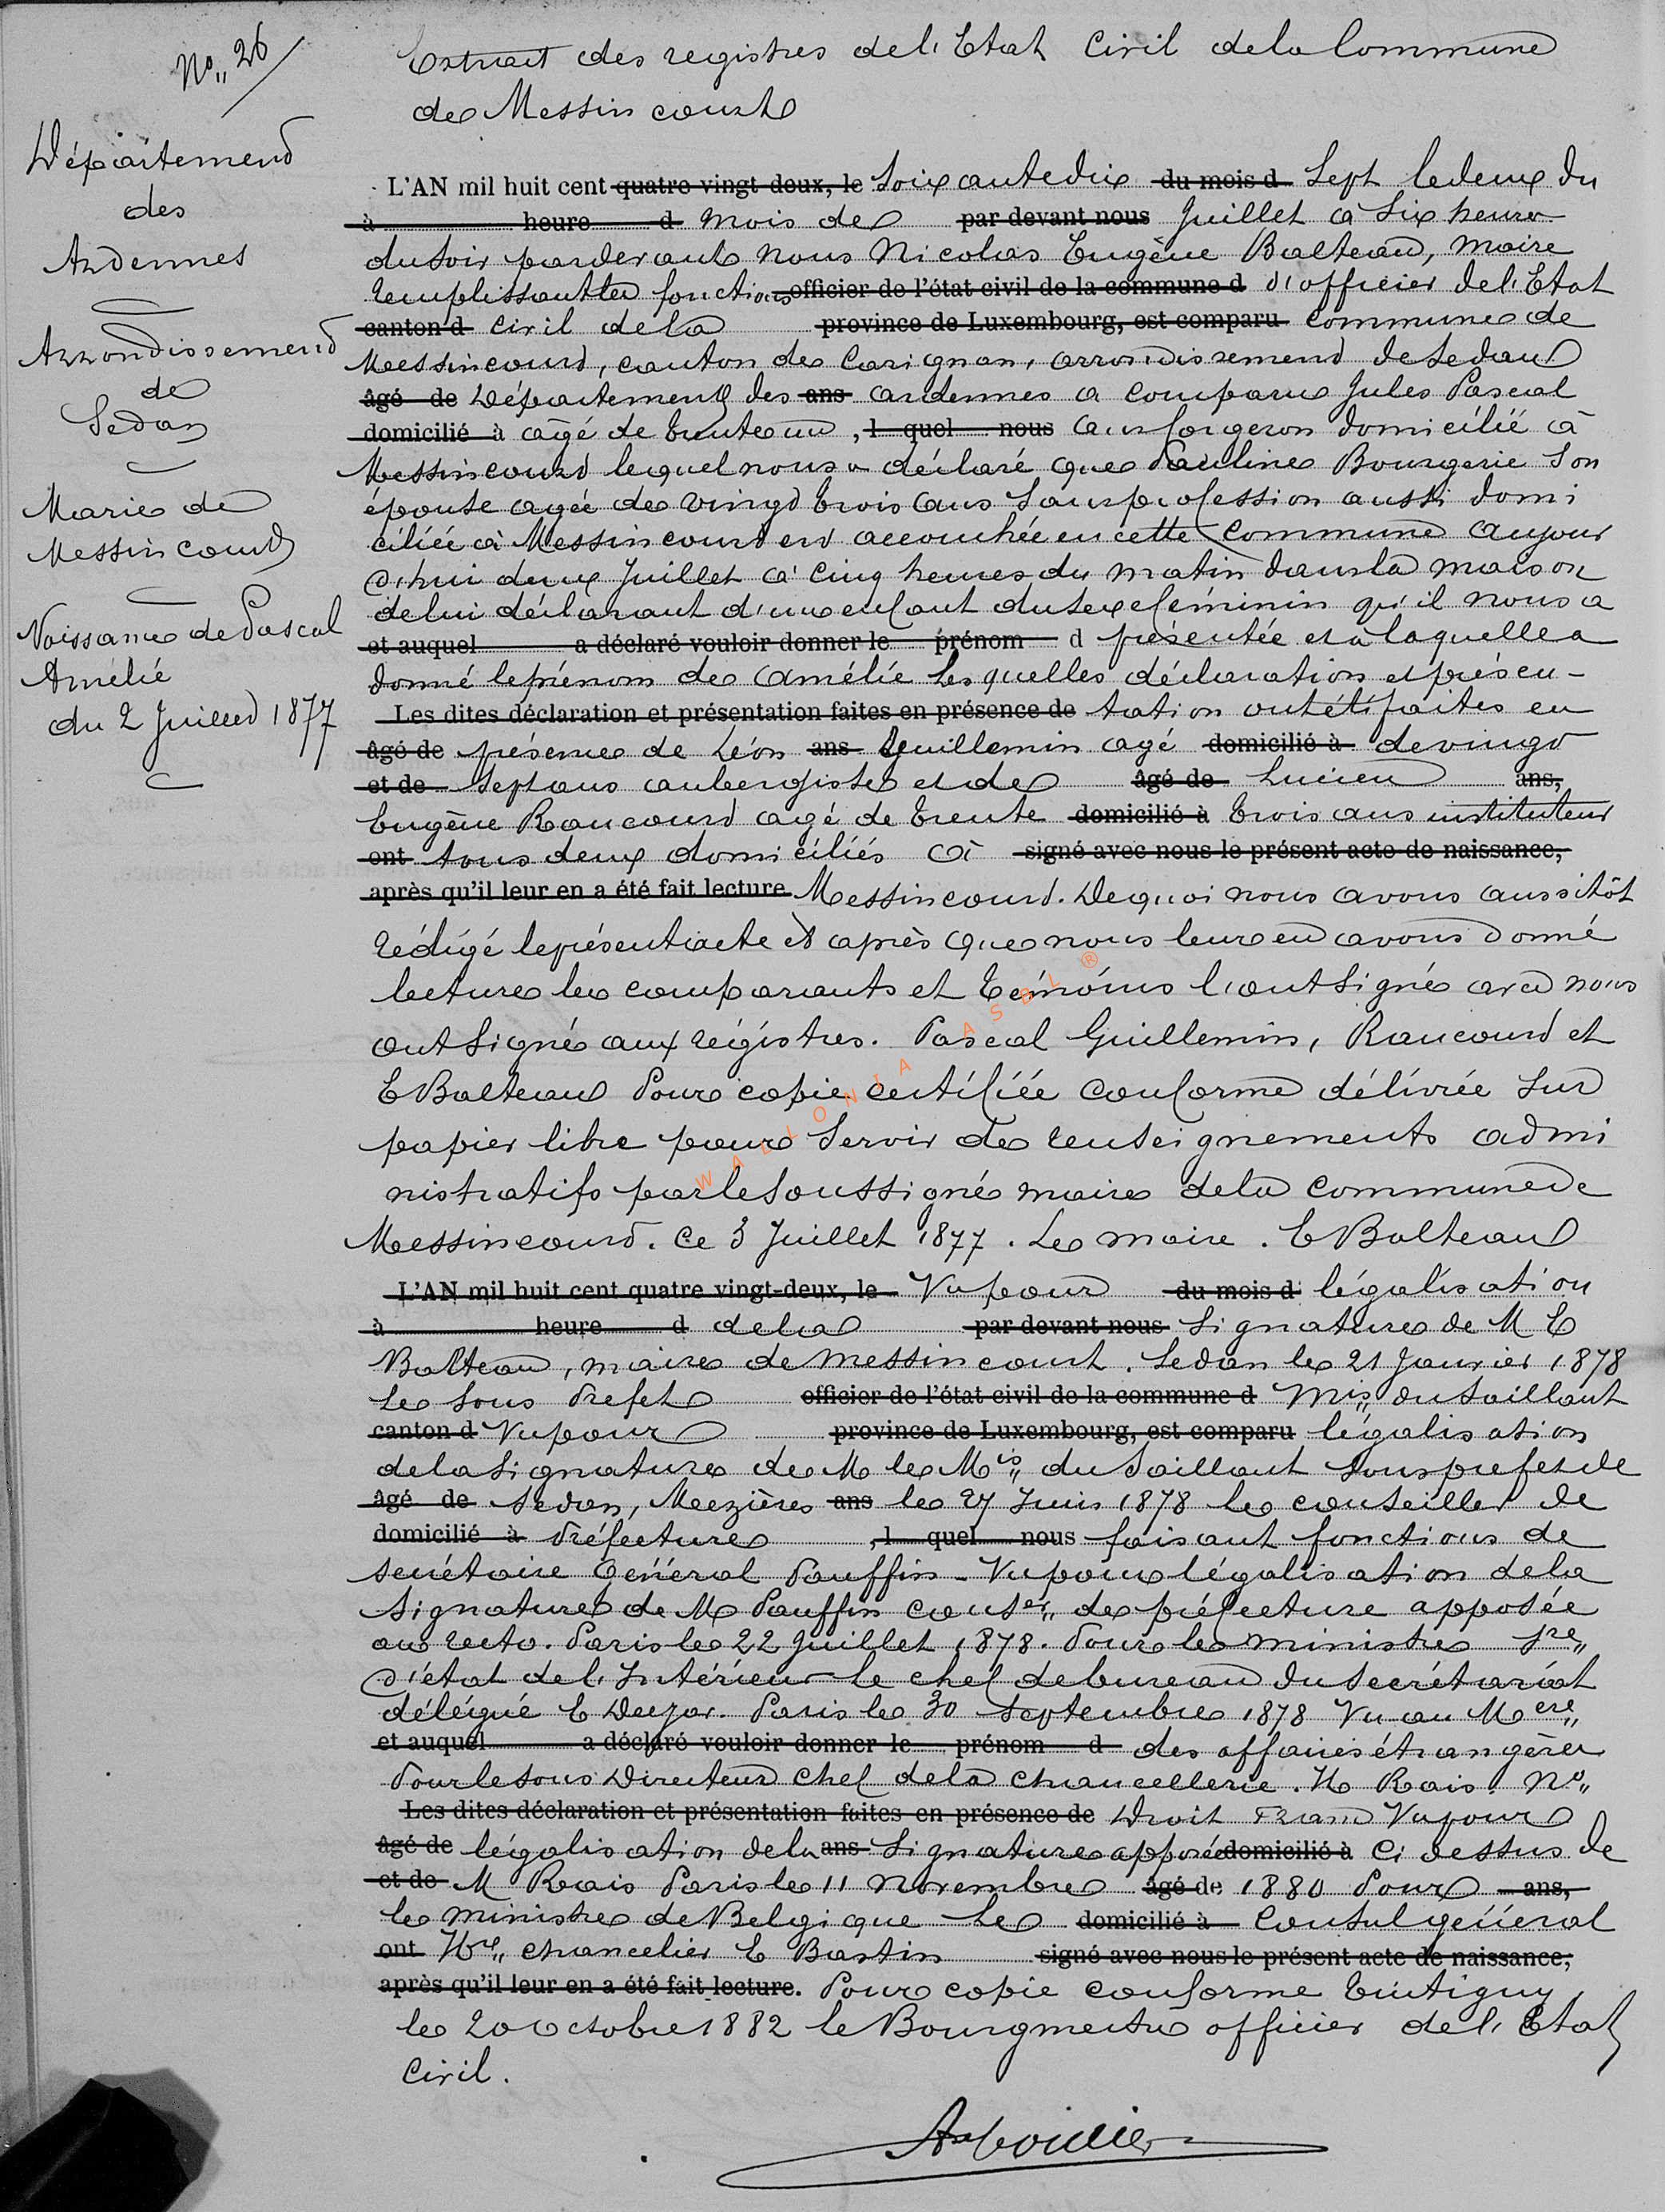 No,, 26
Département
des
Ardennes
Arrondissement
de
Sedan
Mairie de
Messincourt
Naissance de Pascal
Amélie
du 2 Juillet 1877
Extrait des registres de l'Etat Civil de la Commune
de Messincourt
L'AN mil huit cent quatre vingt-deux, le Soixante dix du mois d Sept le deux du
à heure d mois de par devant nous Juillet à Six heures
du Soir par devant nous Nicolas Eugène Balteau, maire
remplissant les fonctions officier de l'état civil de la commune d d'officier de l'Etat
canton d civil de la province de Luxembourg, est comparu commune de
Messincourt, canton de Carignan, arrondissement de Sedan
âgé de Département des ans ardennes a comparu Jules Pascal
domicilié à âgé de trente un , l quel nous ans forgeron domicilié à
Messincourt lequel nous a déclaré que Pauline Bourgerie Son
épouse agée de vingt trois ans Sans profession aussi domi
ciliée à Messincourt est accouchée en cette commune aujour
d'hui deux Juillet à cinq heures du matin dans la maison
de lui déclarant d'un enfant du sexe féminin qu'il nous a
et auquel a déclaré vouloir donner le prénom d présentée et à laquelle a
donné le prénom de Amélie Les quelles déclaration et présen-
Les dites déclaration et présentation faites en présence de tation ont été faites en
âgé de présence de Léon ans Guillemin agé domicilié à de vingt
et de Sept ans aubergiste et de âgé de Lucien ans,
Eugène Raucourt agé de trente domicilié à trois ans instituteur
ont tous deux domiciliés à signé avec nous le présent acte de naissance,
après qu'il leur en a été fait lecture Messincourt. De quoi nous avons aussitôt
rédigé le présent acte et après que nous leur en avons donné
lecture les comparants et témoins l'ont Signé avec nous
ont Signé aux régistres. Pascal Guillemin, Raucourt et
E Balteau Pour copie certifiée conforme délivrée Sur
papier libre pour Servir de renseignements admi
nistratifs par le Soussigné maire de la commune de
Messincourt. Ce 3 Juillet 1877. Le maire. E Balteau
L'AN mil huit cent quatre vingt-deux, le Vu pour du mois d légalisation
à heure d de la par devant nous Signature de M E
Balteau, maire de Messincourt. Sedan le 21 Janvier 1878
Le Sous Prefet officier de l'état civil de la commune d Mis,, du Saillant
canton d Vu pour province de Luxembourg, est comparu légalisation
de la Signature de M le Mis,, du Saillant Sous prefet de
âgé de Sedan, Mezières ans le 27 Juin 1878 Le conseiller de
domicilié à Préfecture , l quel nous faisant fonctions de
secrétaire Général Pauffin - Vu pour légalisation de la
Signature de M Pauffin Conser,, de préfecture apposée
au recto. Paris le 22 Juillet 1878. Pour le ministre Sre,,
d'état de l'Intérieur le chef de bureau du Secrétariat
délégué E Paris le 30 Septembre 1878 Vu au Mere,,
et auquel a déclaré vouloir donner le prénom d des affaires étrangères
Pour le Sous Directeur chef de la chancellerie. H Rais. No,,
Les dites déclaration et présentation faites en présence de Droit Vu pour
âgé de légalisation de la ans Signature apposée domicilié à Ci dessus de
et de M Rais Paris le 11 Novembre âgé de 1880 Pour ans,
le ministre de Belgique Le domicilié à Consul général
ont Hre,, chancelier E Bastin signé avec nous le présent acte de naissance,
après qu'il leur en a été fait lecture. Pour copie conforme Tintigny
le 20 Octobre 1882 le Bourgmestre officier de l'Etat
Civil.
WALLONIA ASBL ®